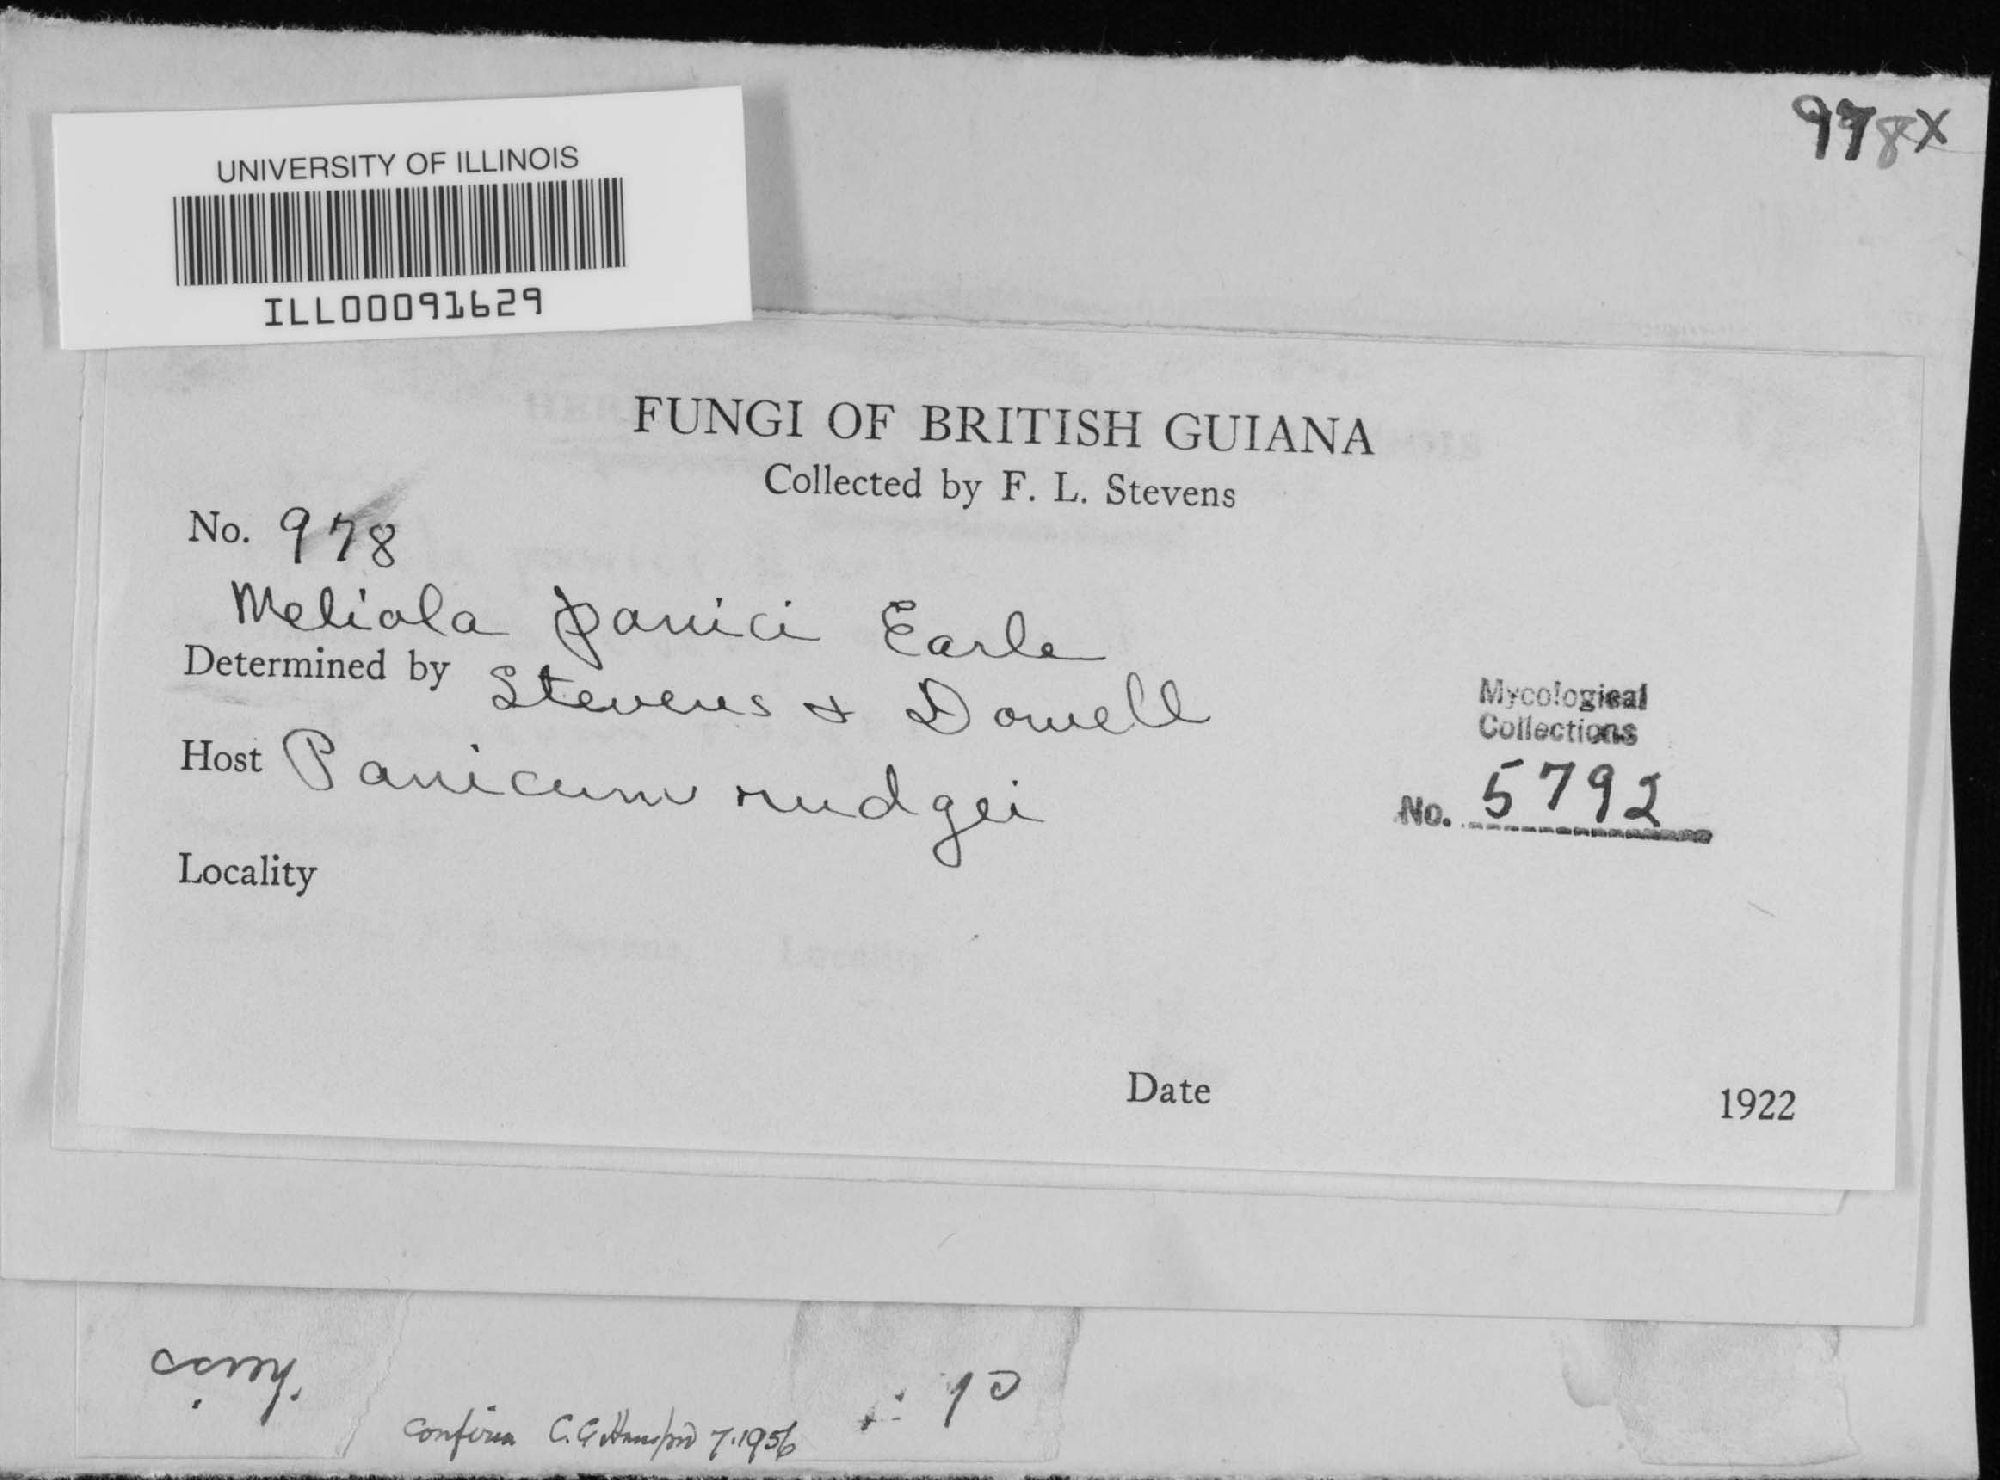 978X
UNIVERSITY OF ILLINOIS
ILL00091629
FUNGI OF BRITISH GUIANA
Collected by F. L. Stevens
No. 978
Meliola panici Earle
Determined by Stevens & Dowell
Host Panicum rudgei
Mycological
Collections
No. 5792
Locality
Date 1922
confirm C. G. Hansford 7.1956